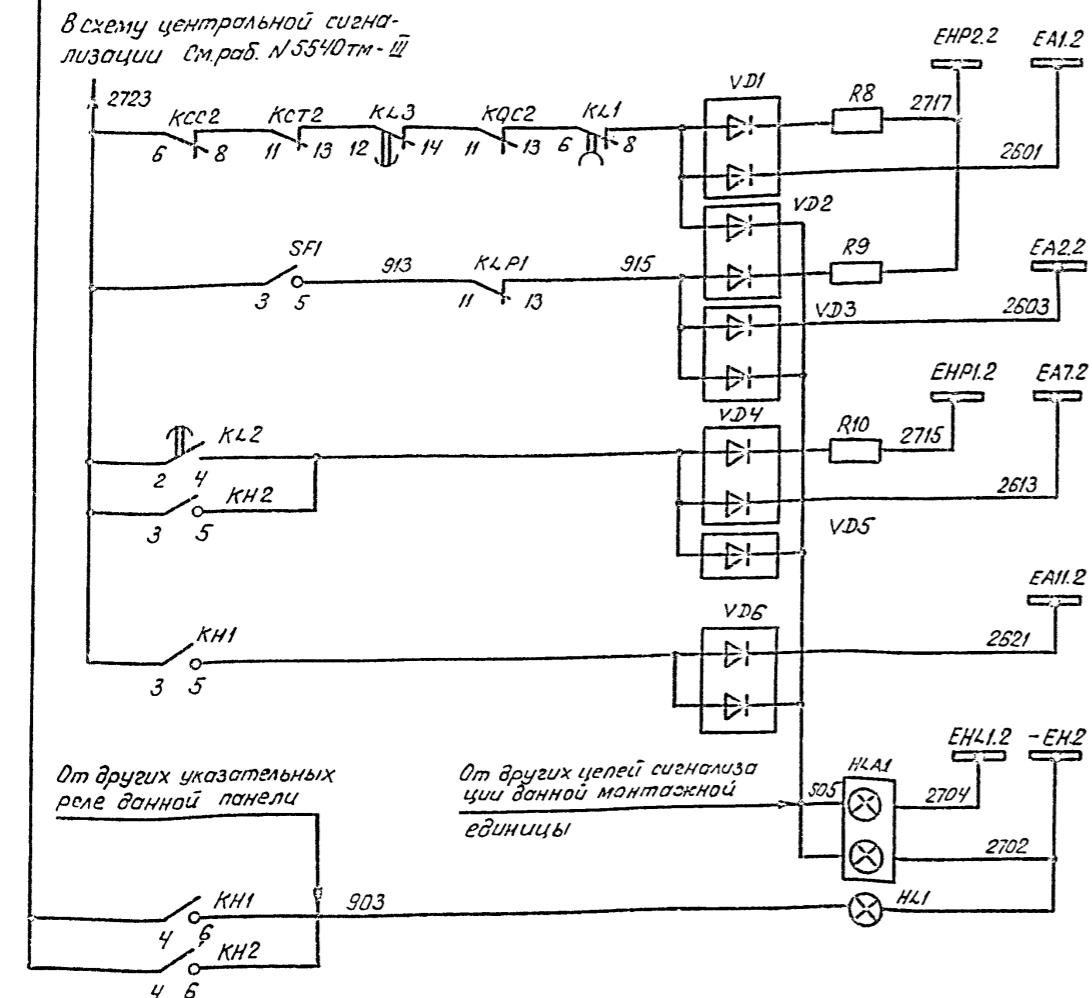 В схему центральной сигна-
лизации См. раб. N 5540тм-III
2723
KCC2
KCT2
KL3
KQC2
KL1
6
8
11
13
12
14
11
13
6
8
VD1
R8
2717
EHP2.2
EA1.2
2601
VD2
SF1
3
5
913
KLP1
11
13
915
R9
EA2.2
VD3
2603
EHP1.2
EA7.2
KL2
2
4
VD4
R10
2715
KH2
3
5
2613
VD5
EA11.2
KH1
3
5
VD6
2621
От других указательных
реле данной панели
От других цепей сигнализа
ции данной монтажной
единицы
505
HLA1
EHL1.2
-EH.2
2704
2702
KH1
4
6
903
HL1
KH2
4
6